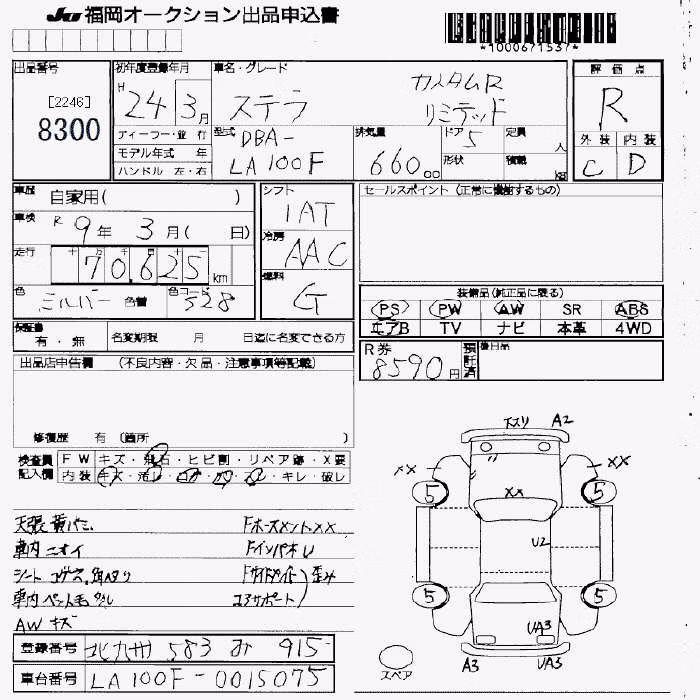 JU 福岡オークション出品申込書
*1000671537*
出品番号
[2246]
8300
初年度登録年月
H 24年 3月
ディーラー・並 行
モデル年式 年
ハンドル 左・右
車名・グレード
ステラ カスタムR リミテッド
型式 DBA-LA100F
排気量 660cc
ドア 5
形状
定員 人
積載 kg
評価点
R
外装 内装
C D
車歴 自家用( )
車検 R 9年 3月( 日)
走行 70,625km
色 シルバー 色替 色コード 528
シフト IAT
冷房 AAC
燃料 G
セールスポイント(正常に機能するもの)
装備品(純正品に限る)
PS PW AW SR ABS
エアB TV ナビ 本革 4WD
保証書 有・無 名変期限 月 日迄に名変できる方
R券 8590円 預託済
後日品
出品店申告欄 (不良内容・欠品・注意事項等記載)
修復歴 有 (箇所 )
検査員記入欄
FW キズ・飛石・ヒビ割・リペア跡・X要
内装 キズ・汚レ・コゲ・穴・スレ・キレ・破レ
天張黄バミ
車内ニオイ
シート コゲ穴
車内ペット毛
AW キズ
Fホースメント XX
Fインパネ
Fサイドメイト 歪み
コアサポート
ススリ A2
XX XX
5 5
XX
U2
5 5
UA3
スペア A3 UA3
登録番号 北九州 583 み 915-
車台番号 LA100F-0015075